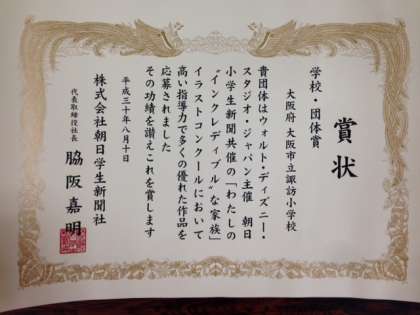 賞状
学校・団体賞
大阪府 大阪市立諏訪小学校
貴団体はウォルト・ディズニー・
スタジオ・ジャパン主催 朝日
小学生新聞共催の「わたしの
“インクレディブル”な家族」
イラストコンクールにおいて
高い指導力で多くの優れた作品を
応募されました
その功績を讃えこれを賞します
平成三十年八月十日
株式会社朝日学生新聞社
代表取締役社長 脇阪嘉明